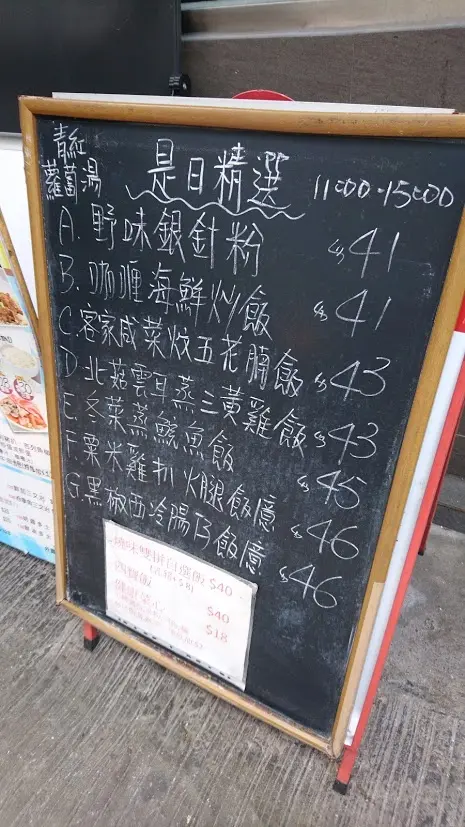 青紅
蘿蔔湯
是日精選 11:00-15:00
A. 野味銀針粉 $41
B. 咖喱海鮮炒飯 $41
C. 客家咸菜炆五花腩飯 $43
D. 北菇雲耳蒸三黃雞飯 $43
E. 冬菜蒸鯇魚飯 $45
F. 粟米雞扒火腿飯 $46
G. 黑椒西冷飯 $46
燒味雙拼自選飯 $40
四寶飯 $40
$18